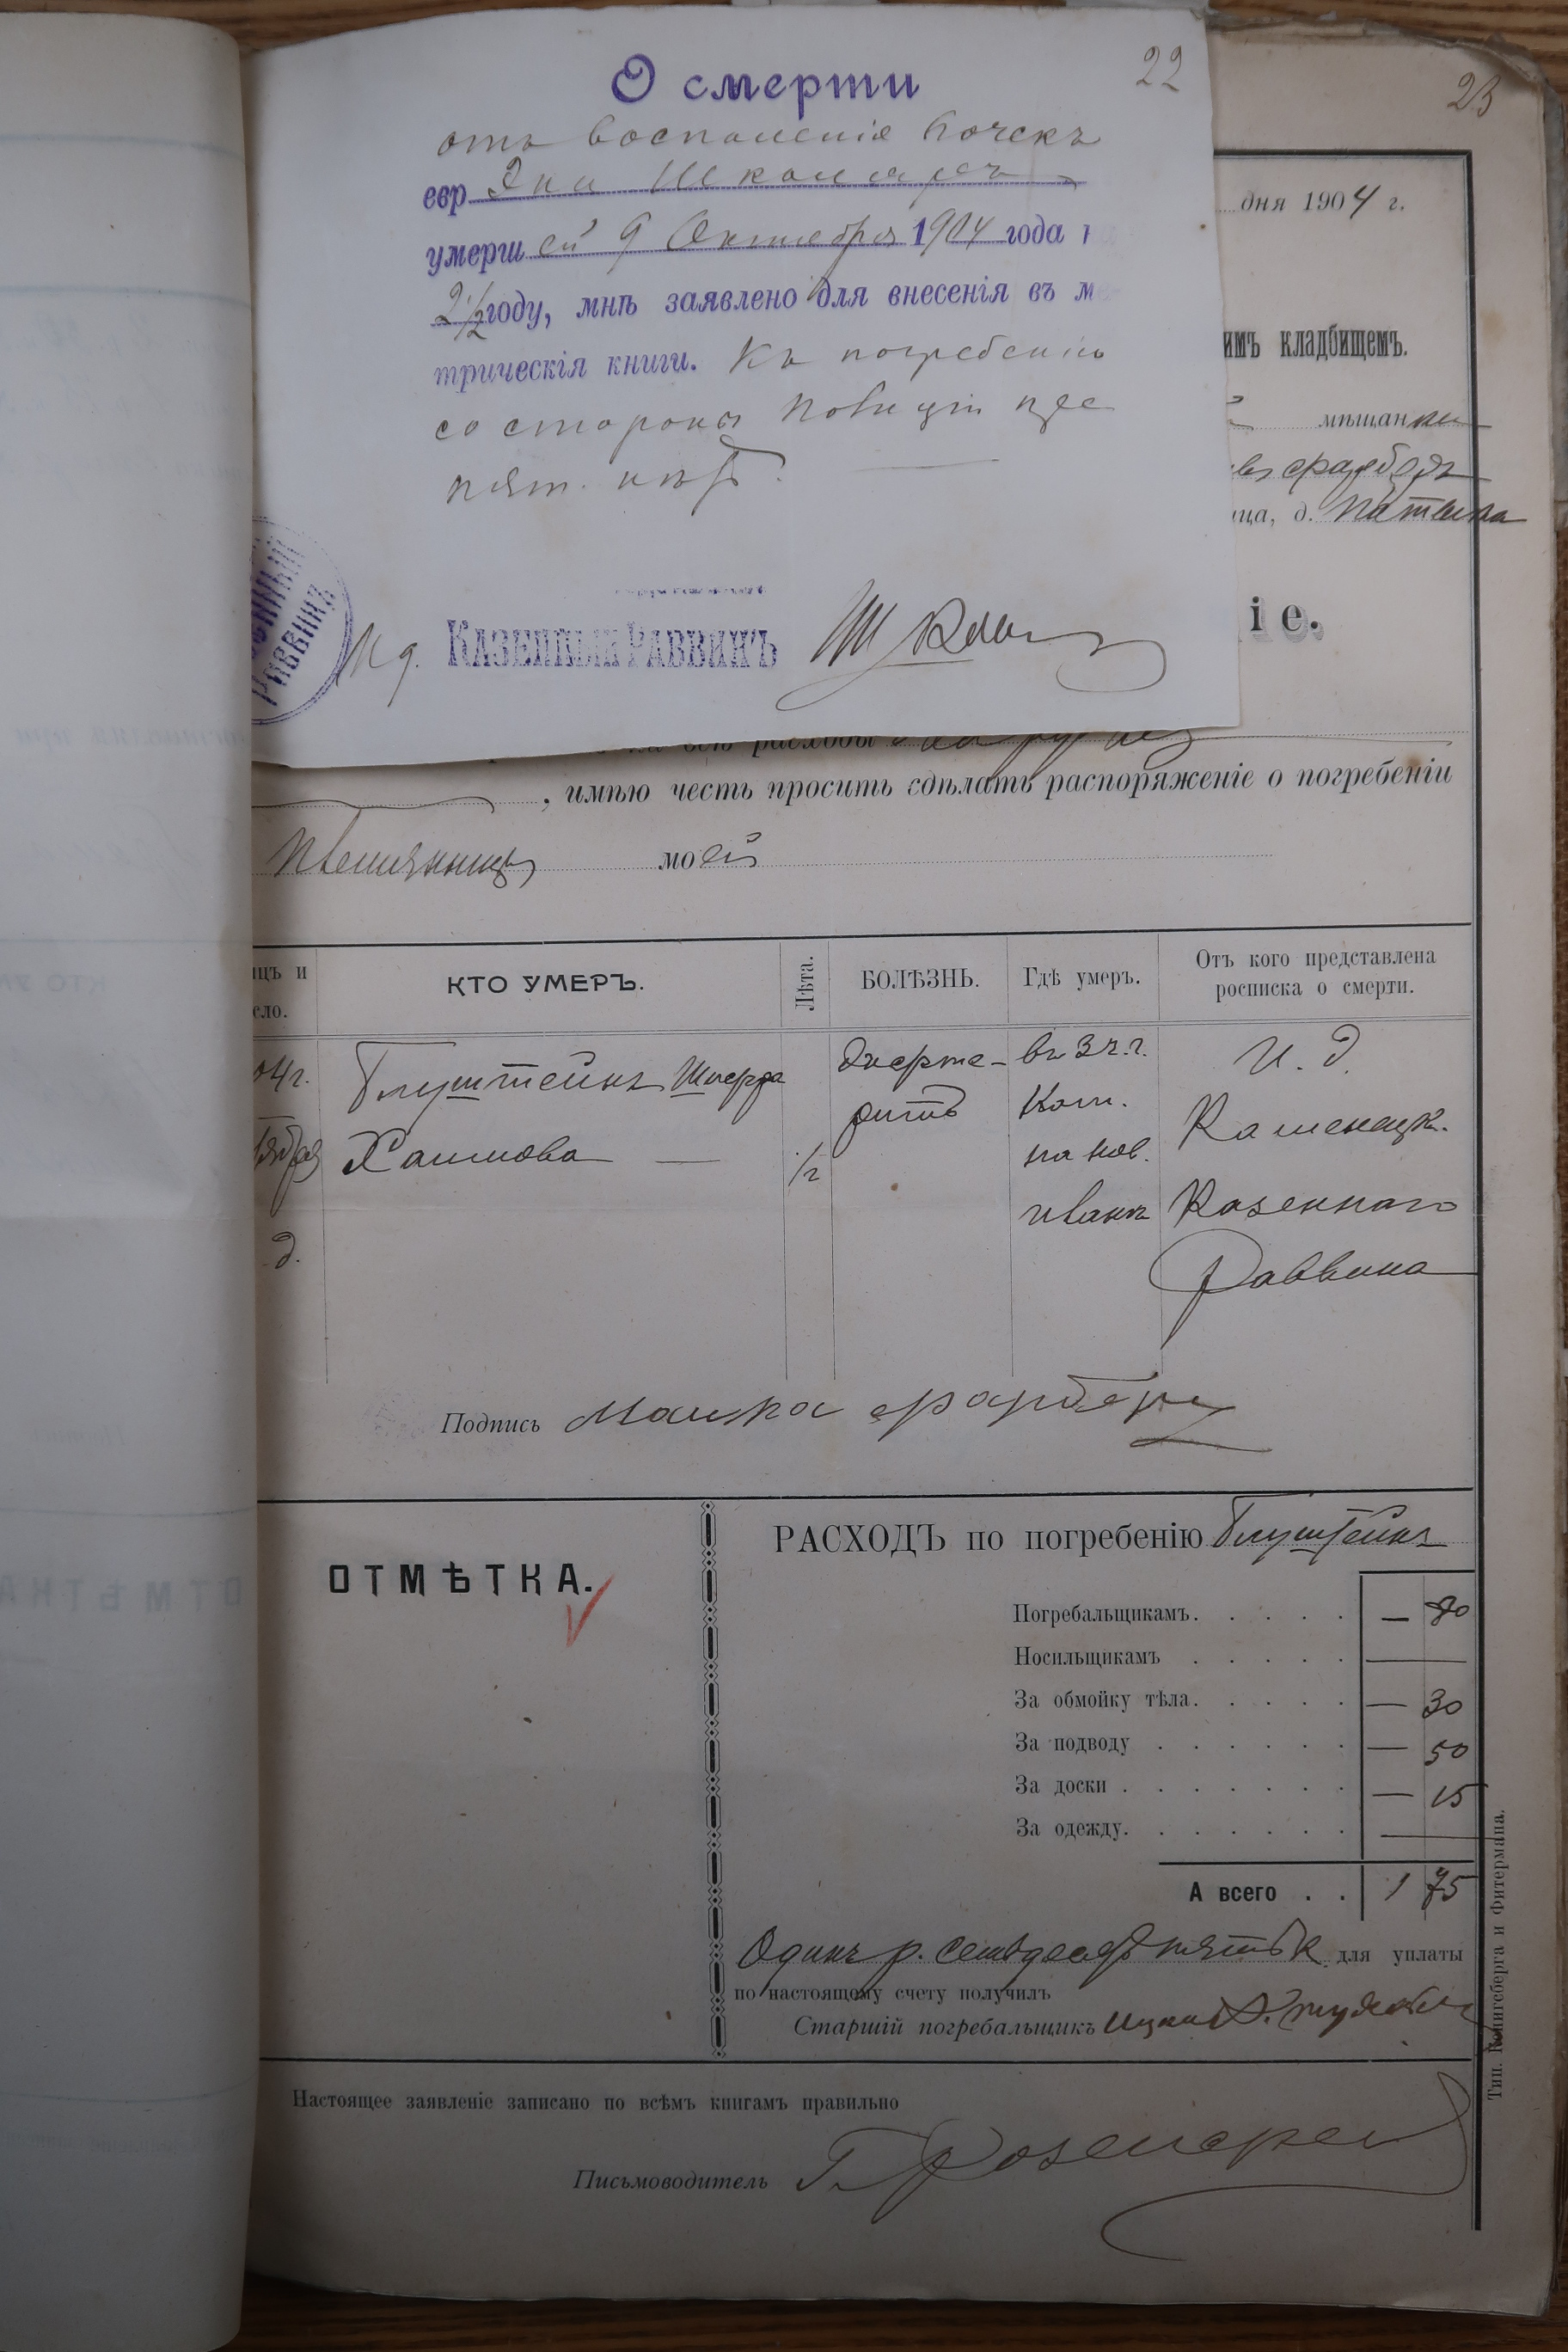 22
О смерти
отъ воспаленія почекъ
евр. Эни Школяръ
умерш ей 9 Октября 1904 года н
2 1/2 году, мнѣ заявлено для внесенія въ ме
трическія книги. Къ погребенію
со стороны полиціи пре
пят. нѣтъ.
РАВВИНЪ
И д. КАЗЕННЫЙ РАВВИНЪ
23
дня 1904 г.
имъ кладбищемъ.
мѣщанки
ица, д.
іе.
на всю расходы
, имѣю честь просить сдѣлать распоряженіе о погребеніи
Племянницы моей
яцъ и
сло.
КТО УМЕРЪ.
Лѣта.
БОЛѢЗНЬ.
Гдѣ умеръ.
Отъ кого представлена
росписка о смерти.
04 г.
тября
д.
Глуштейнъ
Хаимова —
1/2
дифте-
ритъ
въ 3 ч. г.
на нов.
И. д.
Каменецк.
Казеннаго
Раввина
Подпись Малка Фарберъ
ОТМѢТКА.
РАСХОДЪ по погребенію Глуштейнъ
Погребальщикамъ. — 80
Носильщикамъ —
За обмойку тѣла. — 30
За подводу — 50
За доски — 15
За одежду. —
А всего 1 75
Одинъ р. семьдесятъ пять к. для уплаты
по настоящему счету получилъ
Старшій погребальщикъ
Настоящее заявленіе записано по всѣмъ книгамъ правильно
Письмоводитель Г.
Тип. Кенигсберга и Фитермана.